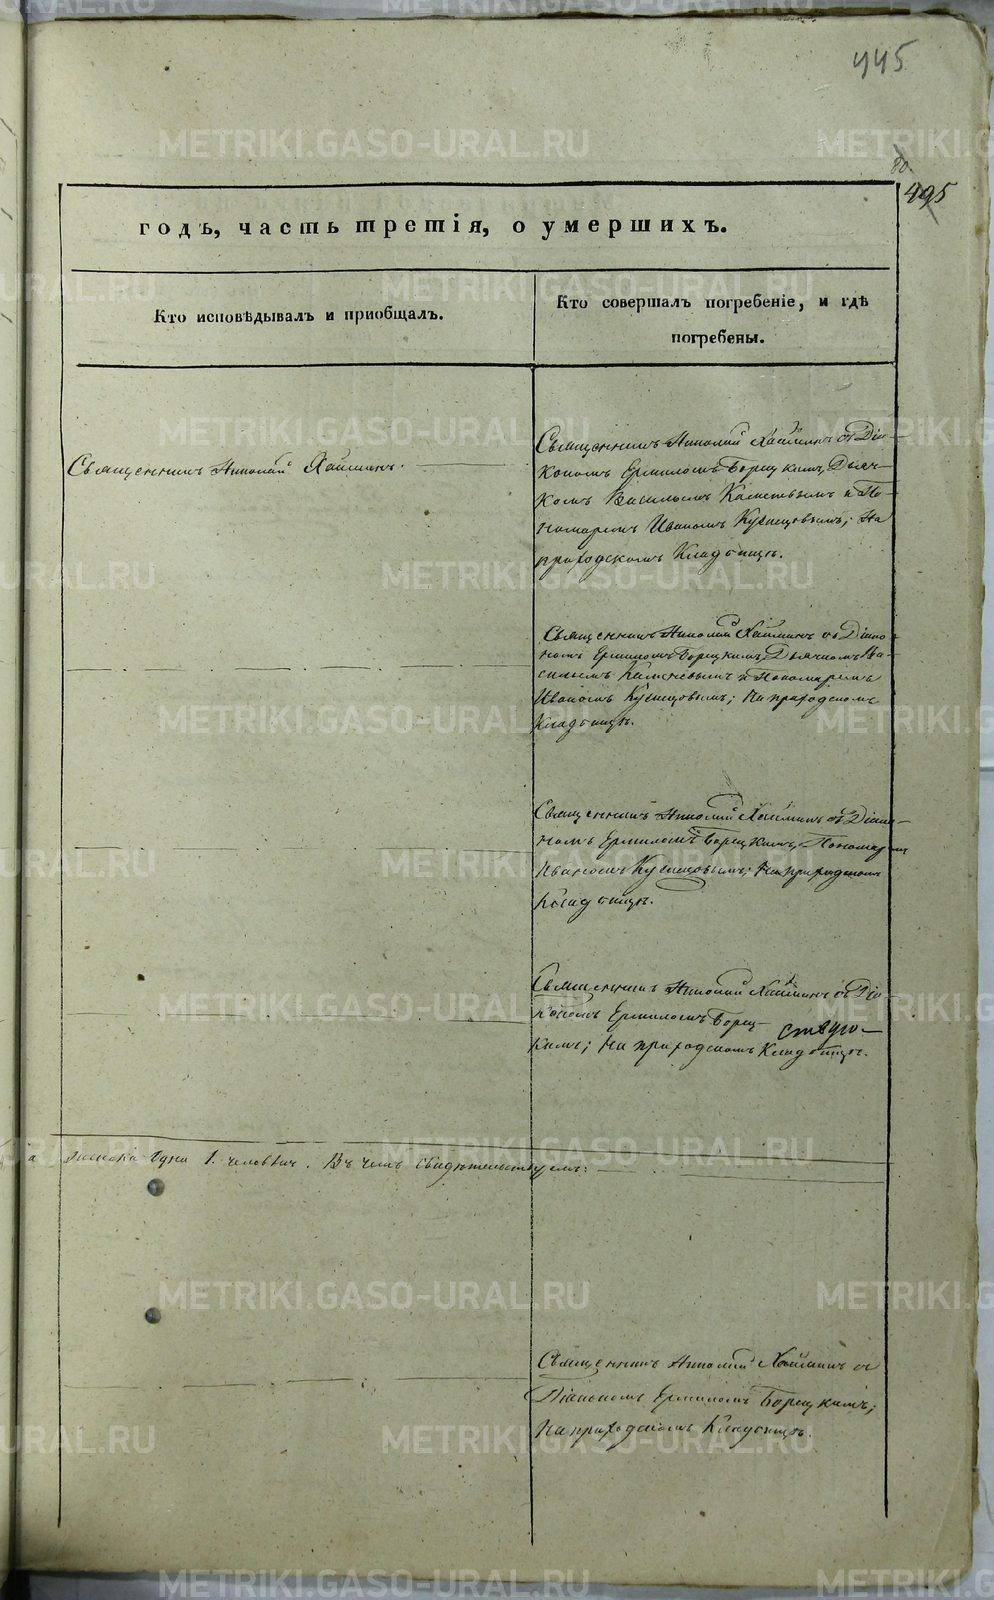 445
80.
495
годъ, часть третія, о умершихъ.
Кто исповѣдывалъ и приобщалъ.
Кто совершалъ погребеніе, и гдѣ
погребены.
Священникъ Николай
Священникъ Николай съ Діа-
кономъ Ермиломъ Борецкимъ, Дьяч-
комъ Васильемъ и По-
номаремъ Иваномъ Кузнецовымъ; На
приходскомъ Кладбищѣ.
Священникъ Николай съ Діако-
номъ Ермиломъ Борецкимъ, Дьячкомъ Ва-
сильемъ и Пономаремъ
Иваномъ Кузнецовымъ; На приходскомъ
Кладбищѣ.
Священникъ Николай съ Діако-
номъ Ермиломъ Борецкимъ, Пономаремъ
Иваномъ Кузнецовымъ; На приходскомъ
Кладбищѣ.
Священникъ Николай съ Діа-
кономъ Ермиломъ Борец-
кимъ; На приходскомъ Кладбищѣ.
ствую-
а одна 1. человѣкъ. Въ чемъ свидѣтельствуемъ:
Священникъ Николай съ
Діакономъ Ермиломъ Борецкимъ;
На приходскомъ Кладбищѣ.
METRIKI.GASO-URAL.RU